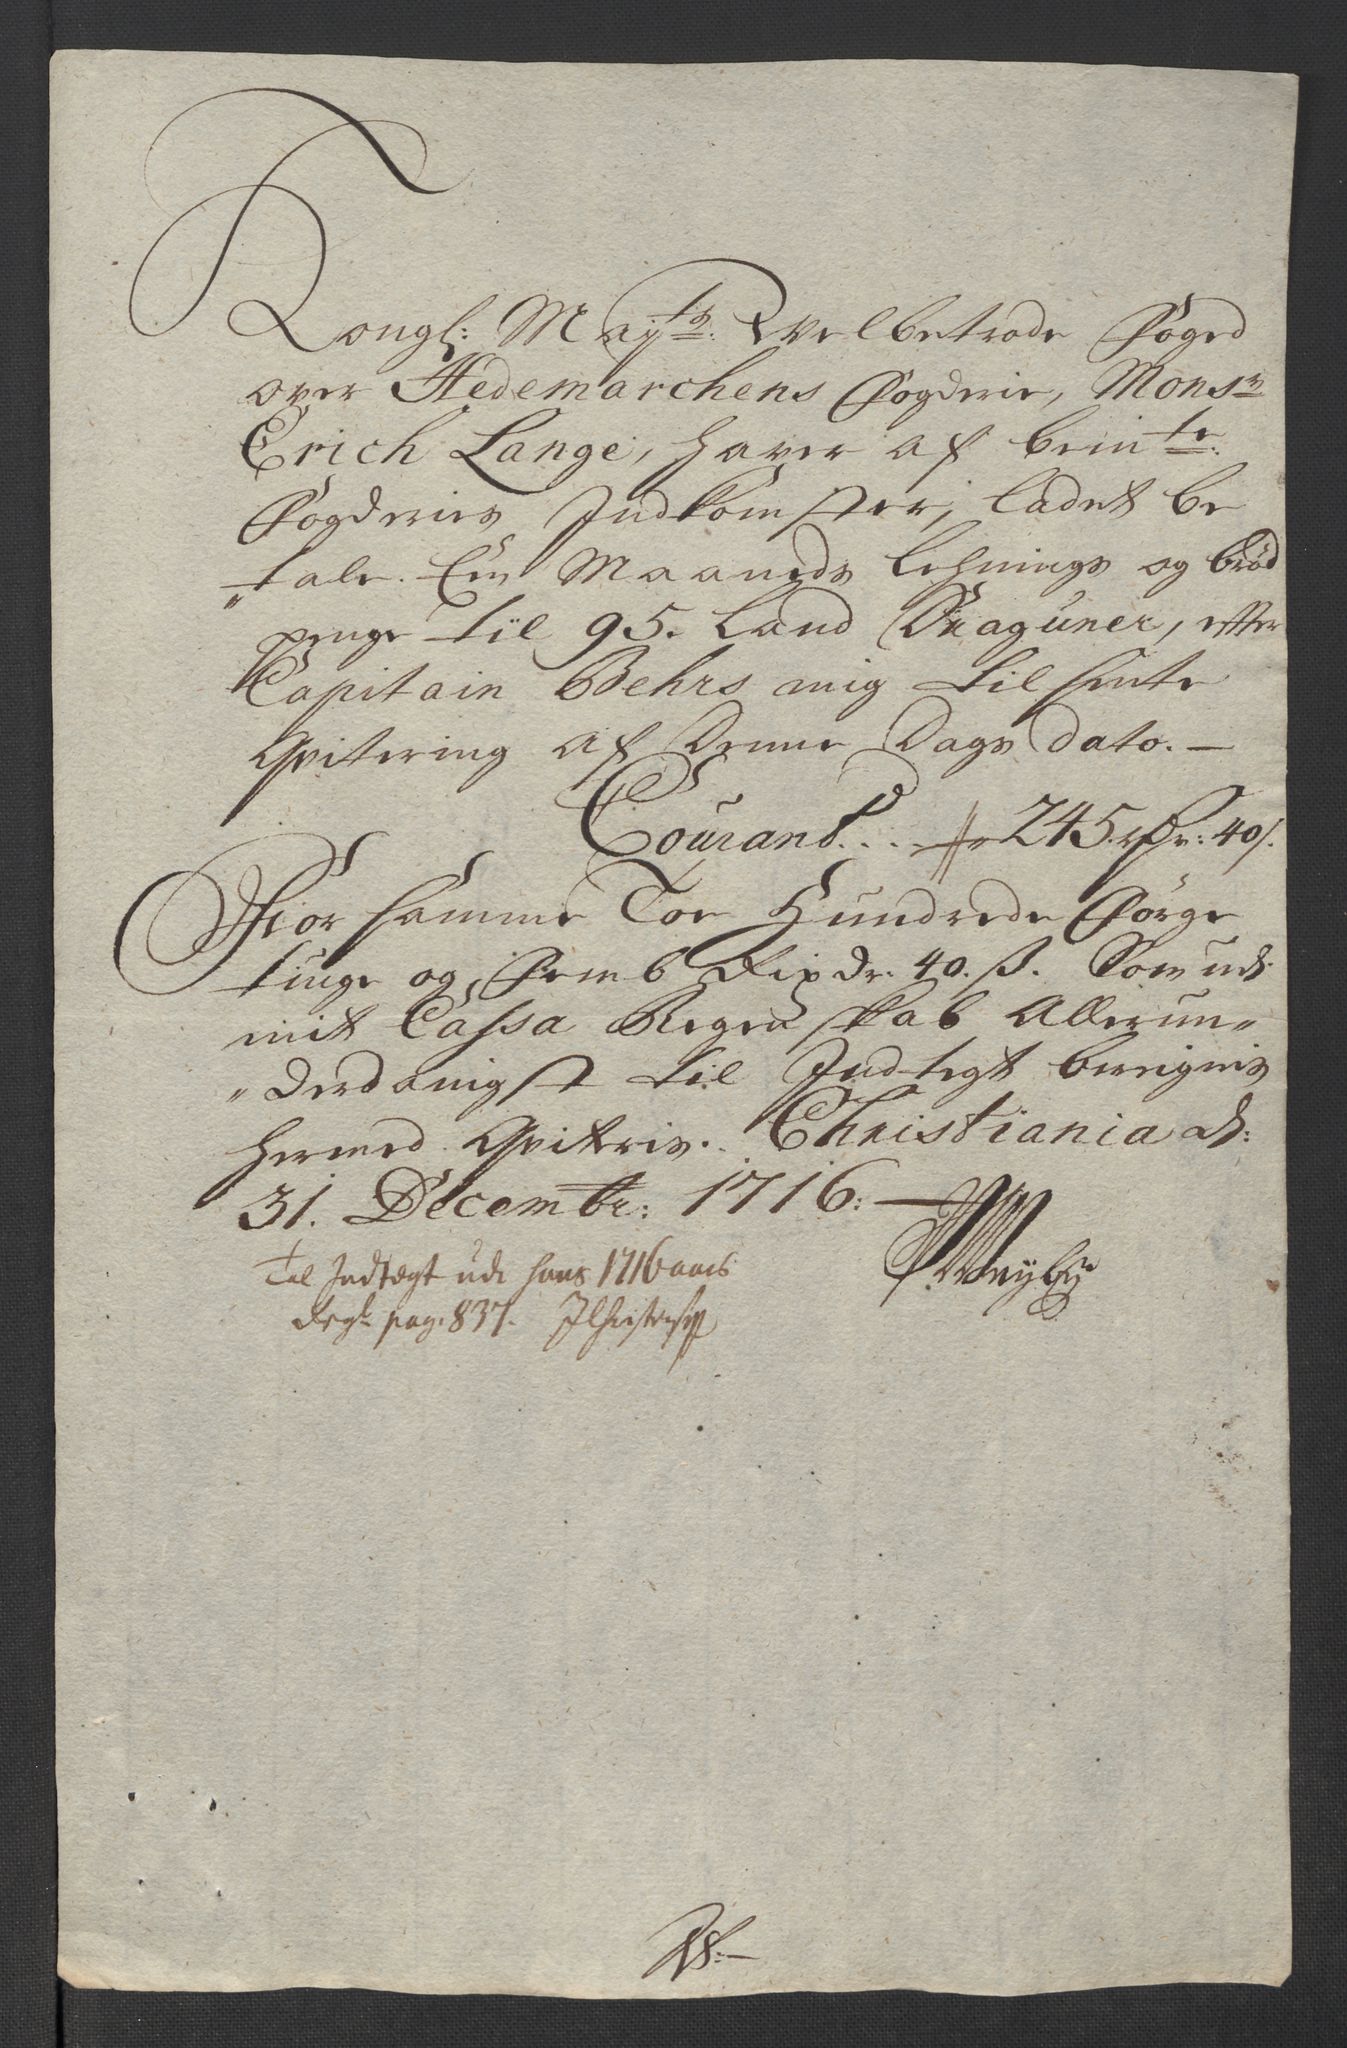 Kongl: Mayts: Velbetrode Foged
over Hedemarchens Fogderie, Monsr
Erich Lange, haver af bemte:
Fogderies Indkomster, ladet be
„tale. Een Maaneds Lehnings og brød
penge til 95. Land Draguner, efter
Capitain Behrs mig tilsente
Qvitering af Denne Dags dato. —
Courant. . . . 245 rdr: 40 s.
For samme Toe Hundrede Førge
tiuge og Femb Rixdr. 40. ß. Som udi
mit Cassa Regenskab Allerun„
„derdanigst til Indtegt bereignis
hermed Qviteris. Christiania d:
31. Decembr: 1716: —
Til Indtægt udi hans 1716 aars
Regsk pag. 837.